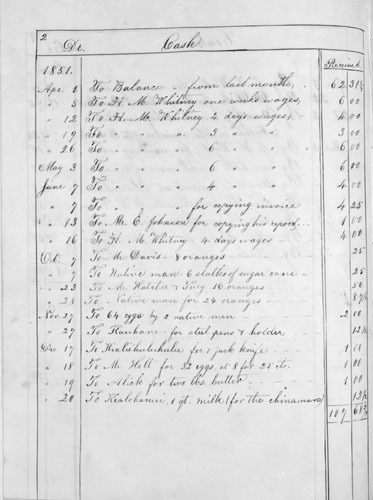 2
Dr. Cash
Received
1851.
Apr. 1 To Balance from last month, 62 31¼
" 5 To H. M. Whitney one weeks wages, 6 00
" 12 To H. M. Whitney 4 days wages, 4 00
" 19 To " " 3 " " 3 00
" 26 To " " 6 " " 6 00
May 3 To " " 6 " " 6 00
June 7 To " " 4 " " 4 00
" 7 To " " for copying invoice 4 25
" 13 To Mr. E. Johnson for copying his report 1 00
" 16 To H. M. Whitney 4 days wages 4 00
Oct. 7 To M. Davis 8 oranges 25
" 7 To Native man 6 stalks of sugar cane 25
" 23 To M. Hatch 16 oranges 50
" 28 To Native man for 24 oranges 87½
Nov. 27 To 64 eggs by 2 native men 2 00
" 27 To for steel pens & holder 12½
Dec 17 To for 1 jack knife 1 00
" 18 To M. Hall for 32 eggs at 8 for 25 cts. 1 00
" 19 To Alick for two lbs butter 1 00
" 20 To 1 qt. milk (for the chinaman) 12½
107 68¾